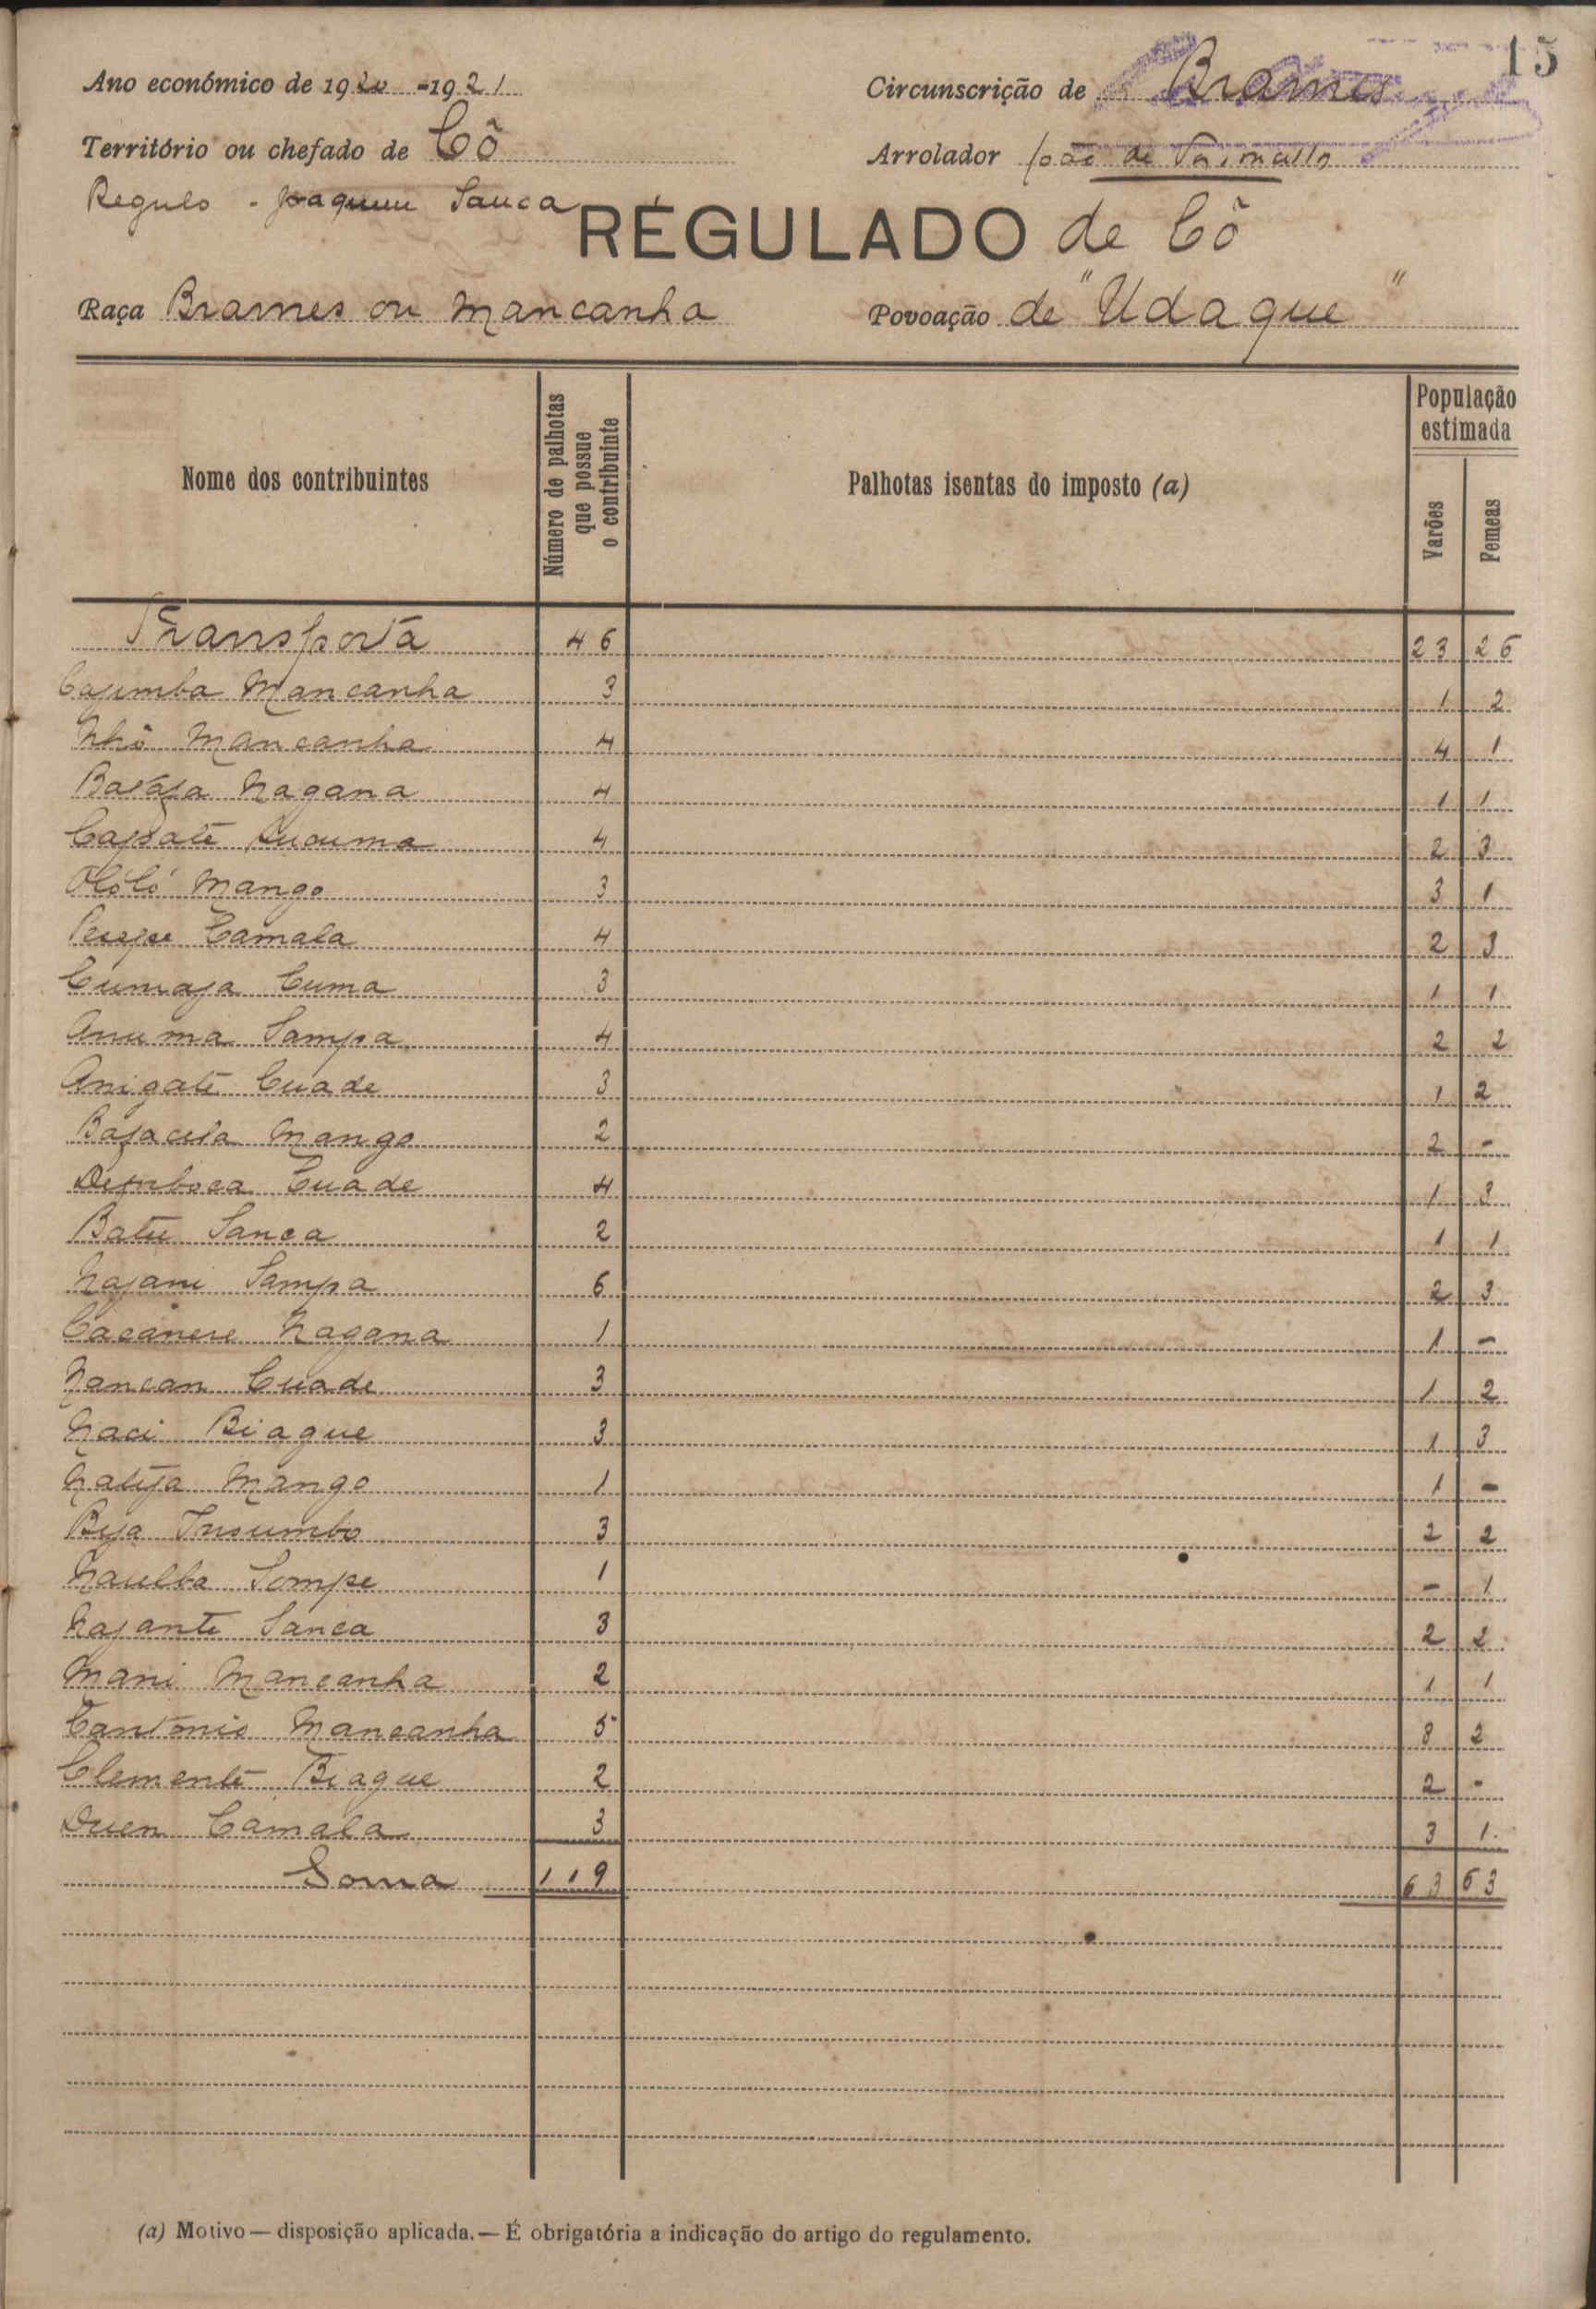 15
Ano económico de 1920-1921 Circunscrição de Brames
Território ou chefado de Cô Arrolador João de
Regulo - Joaquim Sanca
REGULADO de Cô
Raça Brames ou Mancanha Povoação de "Udaque"
Nome dos contribuintes Número de palhotas que possue o contribuinte Palhotas isentas do imposto (a) População estimada Varões Femeas
Transporta 46 23 26
Cajimba Mancanha 3 1 2
Nhô Mancanha 4 4 1
Bataja Nagana 4 1 1
Capatê 4 2 3
Olóló Mango 3 3 1
Camala 4 2 3
Cumaja Cuma 3 1 1
Anuma Sampa 4 2 2
Anigatê Cuade 3 1 2
Mango 2 2 -
Cuade 4 1 3
Batu Sanca 2 1 1
Najani Sampa 6 2 3
Cacanere Nagana 1 1 -
Nancan Cuade 3 1 2
Naci Biague 3 1 3
Natija Mango 1 1 -
Bija Insumbo 3 2 2
Sompe 1 - 1
Najante Sanca 3 2 2
Mani Mancanha 2 1 1
Cantonio Mancanha 5 3 2
Clemente Biague 2 2 -
Duen Camala 3 3 1
Soma 119 63 63
(a) Motivo — disposição aplicada. — É obrigatória a indicação do artigo do regulamento.